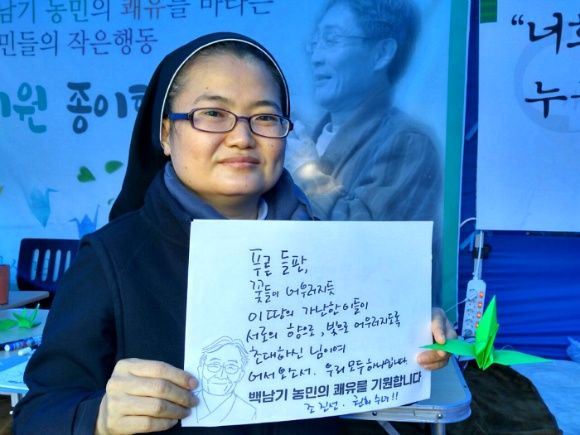 남기 농민의 쾌유를 바라는
민들의 작은행동
기원 종이학
"너희
누구
푸른 들판,
꽃들이 어우러지듯
이 땅의 가난한 이들이
서로의 향으로, 빛으로 어우러지도록
초대하신 님이여
어서 오소서. 우리 모두 하나랍니다
백남기 농민의 쾌유를 기원합니다